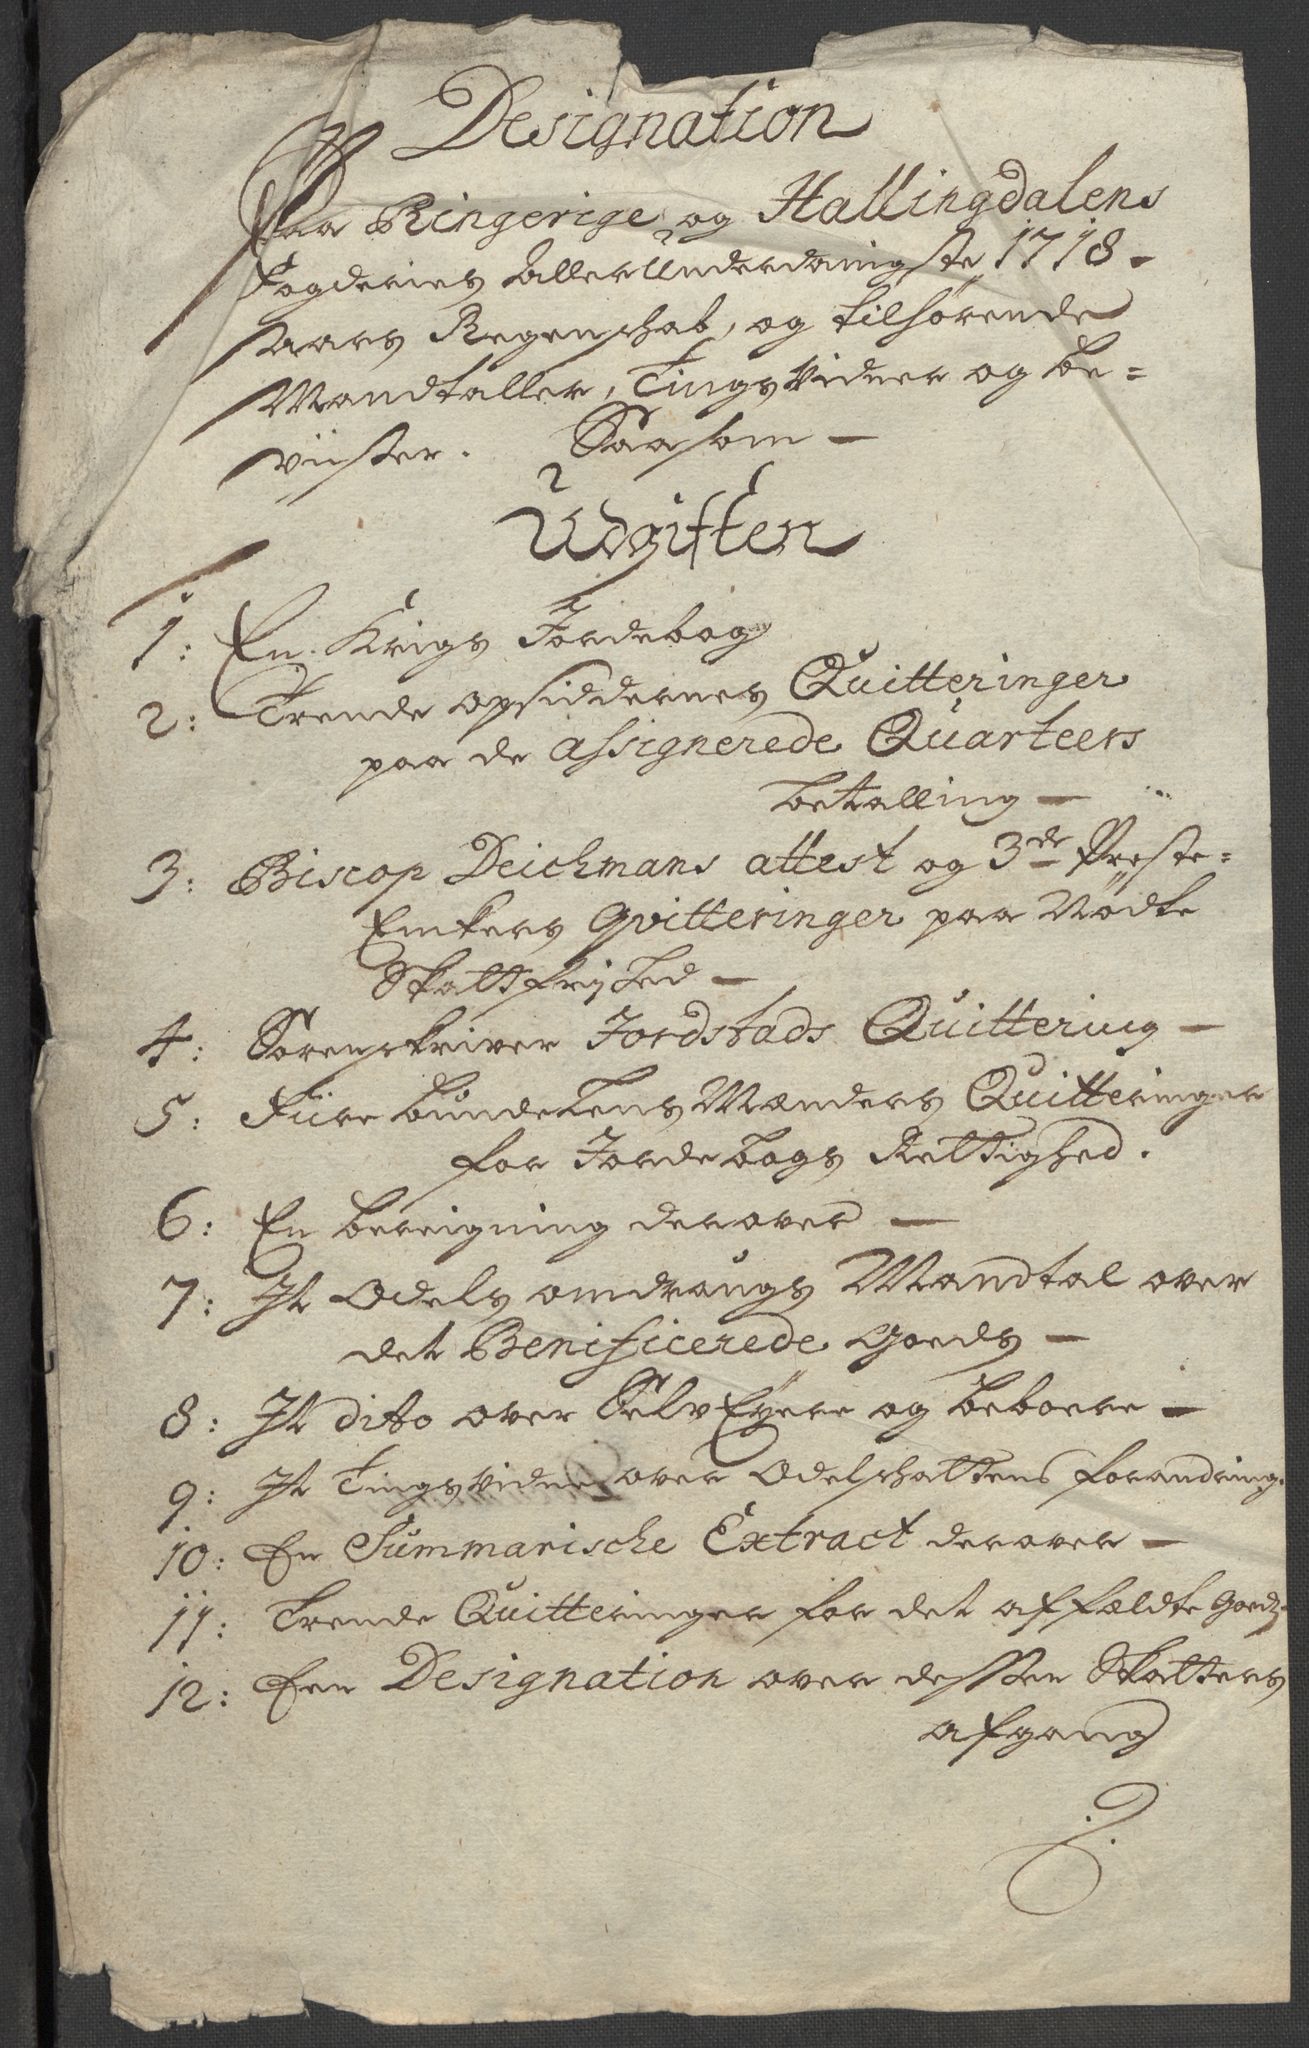 Designation
Paa Ringerige og Hallingdalens
Fogderies allerUnderdanigste 1718.
aars Regenschab, og tilhørende
Mandtaller, TingsVidner og be=
viister. Saasom —
Udgiften
1: En Krigs Jordebog
2: Trende opsiddernes Quitteringer
paa de assignerede Quarteers
betalling —
3: Biscop Deichmans attest og 3de Preste=
Enkers qvitteringer paa Nødte
Skattfrijhed —
4: Sorenskriver Jordstads Quittering —
5: Fiire bundeLensMænders Quitteringer
for Jordebogs Rettighed.
6: En bereigning derover —
7: It Odels omdrangs Mandtal over
det Benificerede Goeds —
8: It dito over SelvEyere og beboere —
9: It TingsVidne over Odelschattens forandring.
10: En Summarische Extract derover —
11: Trende Quitteringer for det affældte Goeds.
12: Een Designation over dessen Skatters
afgang